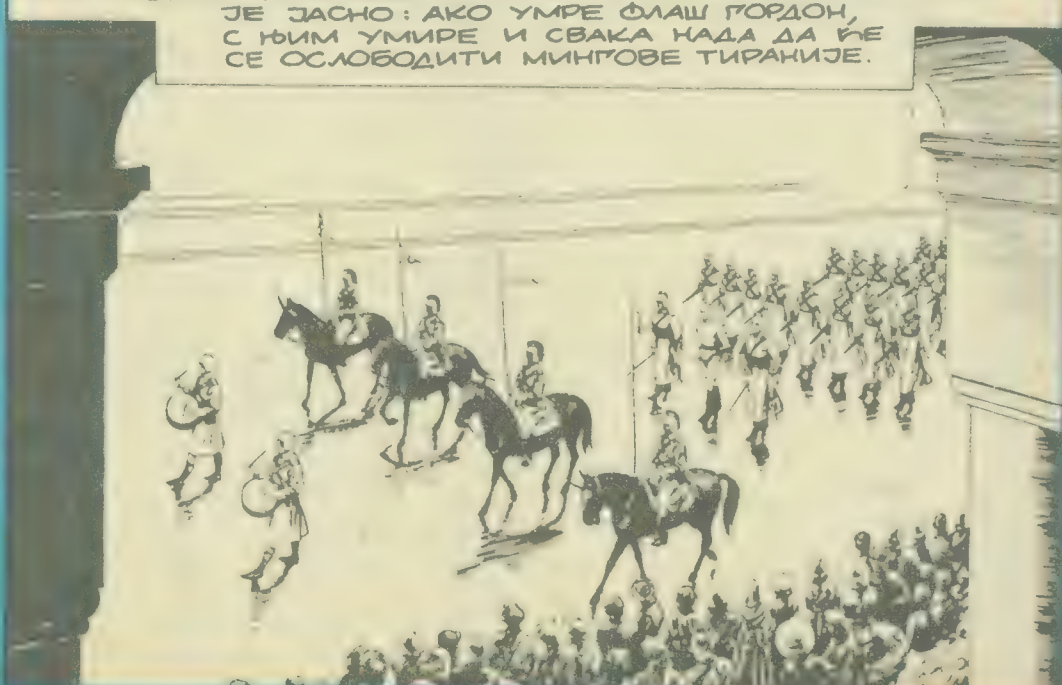 ЈЕ ЈАСНО: АКО УМРЕ ФЛАШ ГОРДОН,
С ЊИМ УМИРЕ И СВАКА НАДА ДА ЋЕ
СЕ ОСЛОБОДИТИ МИНГОВЕ ТИРАНИЈЕ.